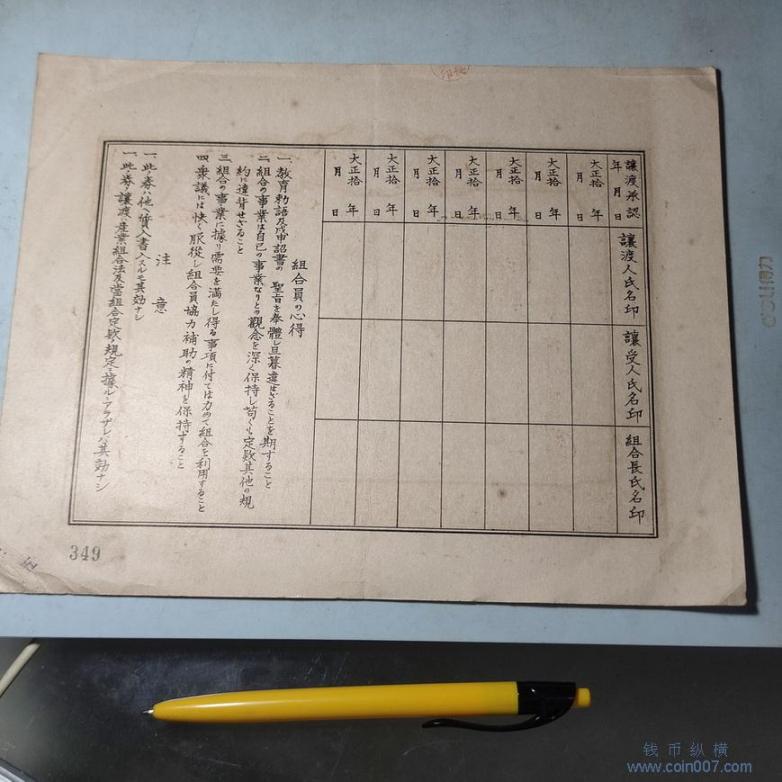 讓渡承認
年月日
讓渡人氏名印
讓受人氏名印
組合長氏名印
大正拾年
月日
大正拾年
月日
大正拾年
月日
大正拾年
月日
大正拾年
月日
大正拾年
月日
大正拾年
月日
組合員の心得
一、教育勅語及戊申詔書の聖旨を奉體し旦暮違はざることを期すること
二、組合の事業は自己の事業なりとの觀念を深く保持し苟くも定欵其他の規
約に違背せざること
三、組合の事業に據り需要を滿たし得る事項に付ては力めて組合を利用すること
四、衆議には快く服從し組合員協力補助の精神を保持すること
注意
一、此ノ券ハ他ヘ質入書入スルモ其効ナシ
一、此ノ券ノ讓渡ハ產業組合法及當組合定欵ノ規定ニ據ルニアラザレバ其効ナシ
349
钱币纵横
www.coin007.com